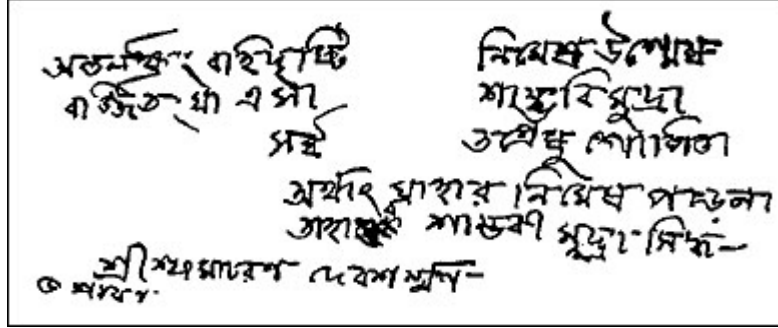 অন্তর্লক্ষ্যং বাহিদৃষ্টি নিমেষ উন্মেষ
বর্জ্জিত যা এসা শাম্ভবি মুদ্রা
সর্ব্ব তন্ত্রেষু গোপিতা
অর্থাৎ যাহার নিমেষ পড়েনা
শাম্ভবী মুদ্রা সিদ্ধ–
শ্রীশ্যামাচরণ দেবশর্ম্মণ–